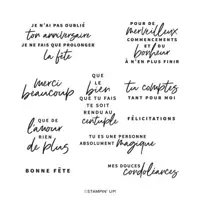 JE N'AI PAS OUBLIÉ
ton anniversaire
JE NE FAIS QUE PROLONGER
la fête
POUR DE
merveilleux
COMMENCEMENTS
ET DU
bonheur
À N'EN PLUS FINIR
merci
beaucoup
QUE
LE
bien
QUE
TU FAIS
TE SOIT
RENDU
AU
centuple
tu comptes
TANT POUR MOI
QUE DE
l'amour
RIEN
de plus
FÉLICITATIONS
TU ES UNE PERSONNE
ABSOLUMENT magique
BONNE FÊTE
MES DOUCES
condoléances
©STAMPIN' UP!